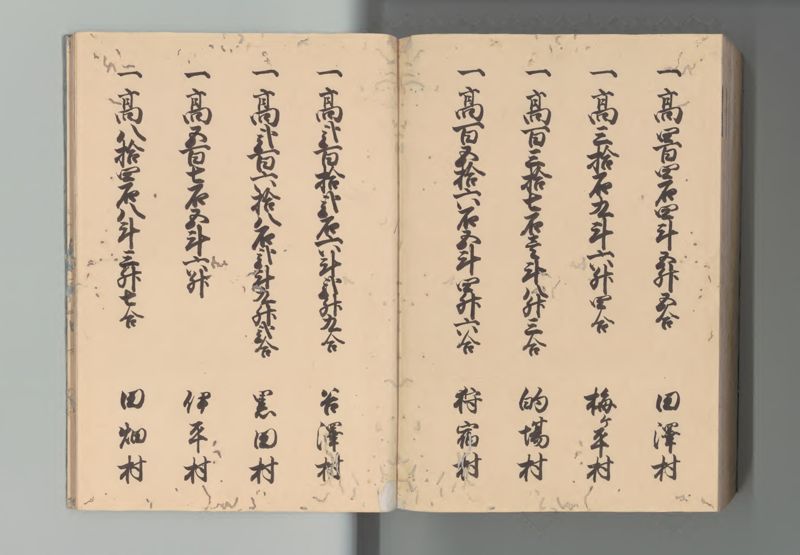 一高四百四石四斗五升五合 田澤村
一高三拾石九斗六升四合 梅ヶ平村
一高百三拾七石壱斗八升三合 的場村
一高百五拾六石五斗四升六合 狩宿村
一高弐百拾弐石六斗弐升九合 谷澤村
一高弐百六拾八石弐斗九升弐合 黒田村
一高五百七石五斗六升 伊平村
一高八拾四石八斗三升七合 田畑村